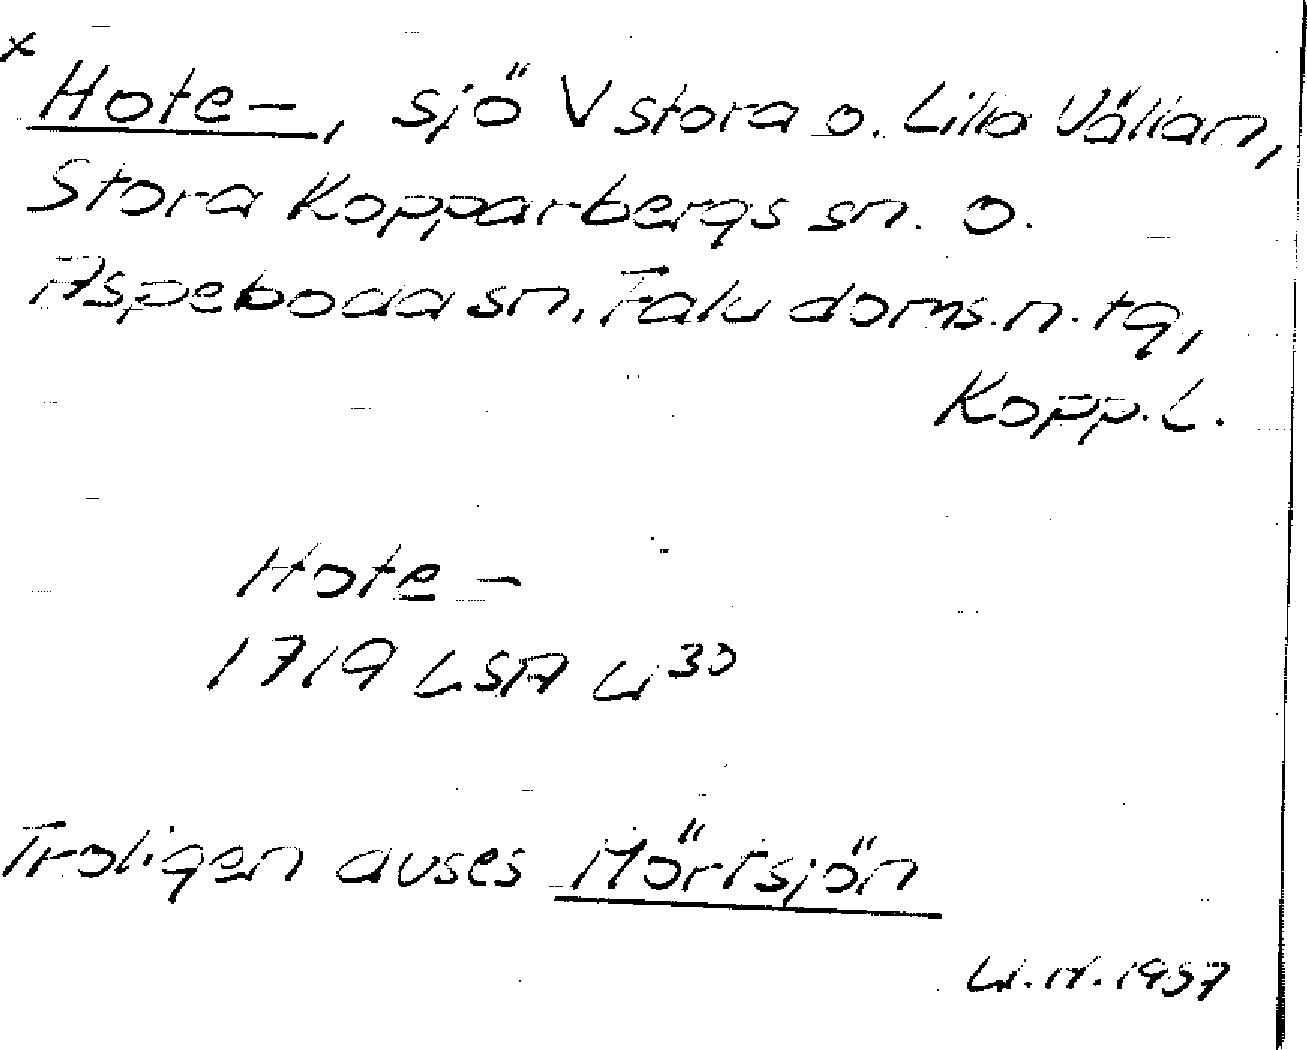 x
Hote-, sjö V Stora o. Lilla Vällan,
Stora Kopparbergs sn. o.
Aspeboda sn. Falu doms.n. tg,
Kopp. L.
Hote-
1719 LSA W 30
Troligen avses Mörtsjön
1957